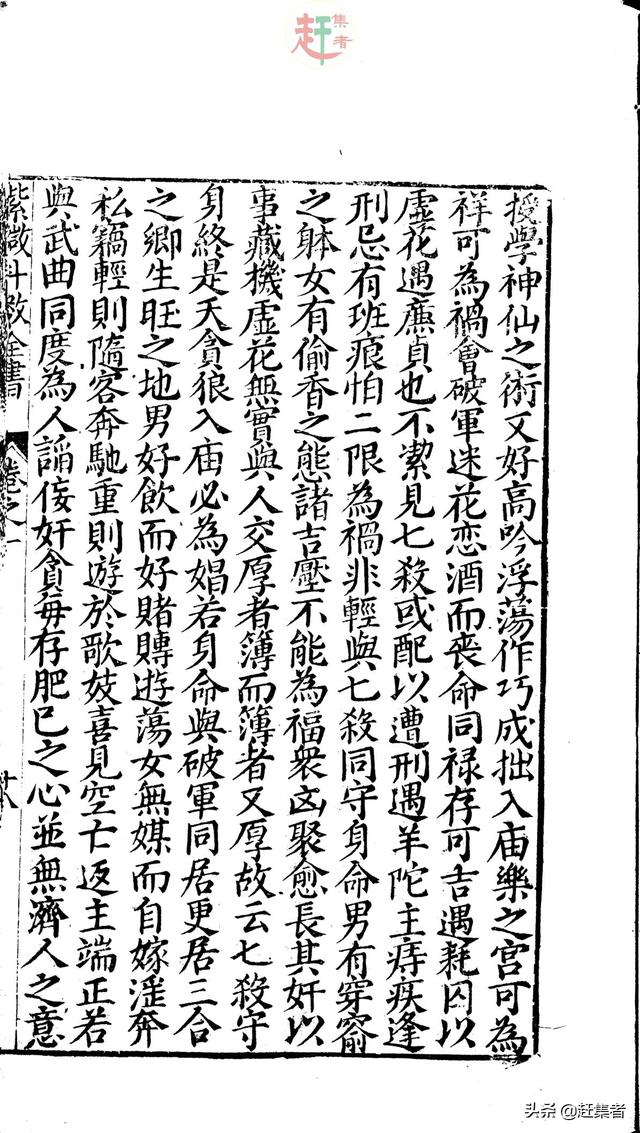 赶集者
授學神仙之術又好高吟浮蕩作巧成拙入庙樂之宫可為
祥可為禍會破軍迷花恋酒而丧命同禄存可吉遇耗囚以
虛花遇廉貞也不潔見七殺或配以遭刑遇羊陀主痔疾逢
刑忌有班痕怕二限為禍非輕與七殺同守身命男有穿窬
之躰女有偷香之態諸吉壓不能為福衆凶聚愈長其奸以
事藏機虛花無實與人交厚者簿而簿者又厚故云七殺守
身終是夭貪狼入庙必為娼若身命與破軍同居更居三合
之鄉生旺之地男好飲而好賭賻遊蕩女無媒而自嫁滛奔
私竊輕則隨客奔馳重則遊於歌妓喜見空亡返主端正若
與武曲同度為人謟佞奸貪毎存肥己之心並無濟人之意
紫微斗数全書 卷之一 十八
头条 @赶集者